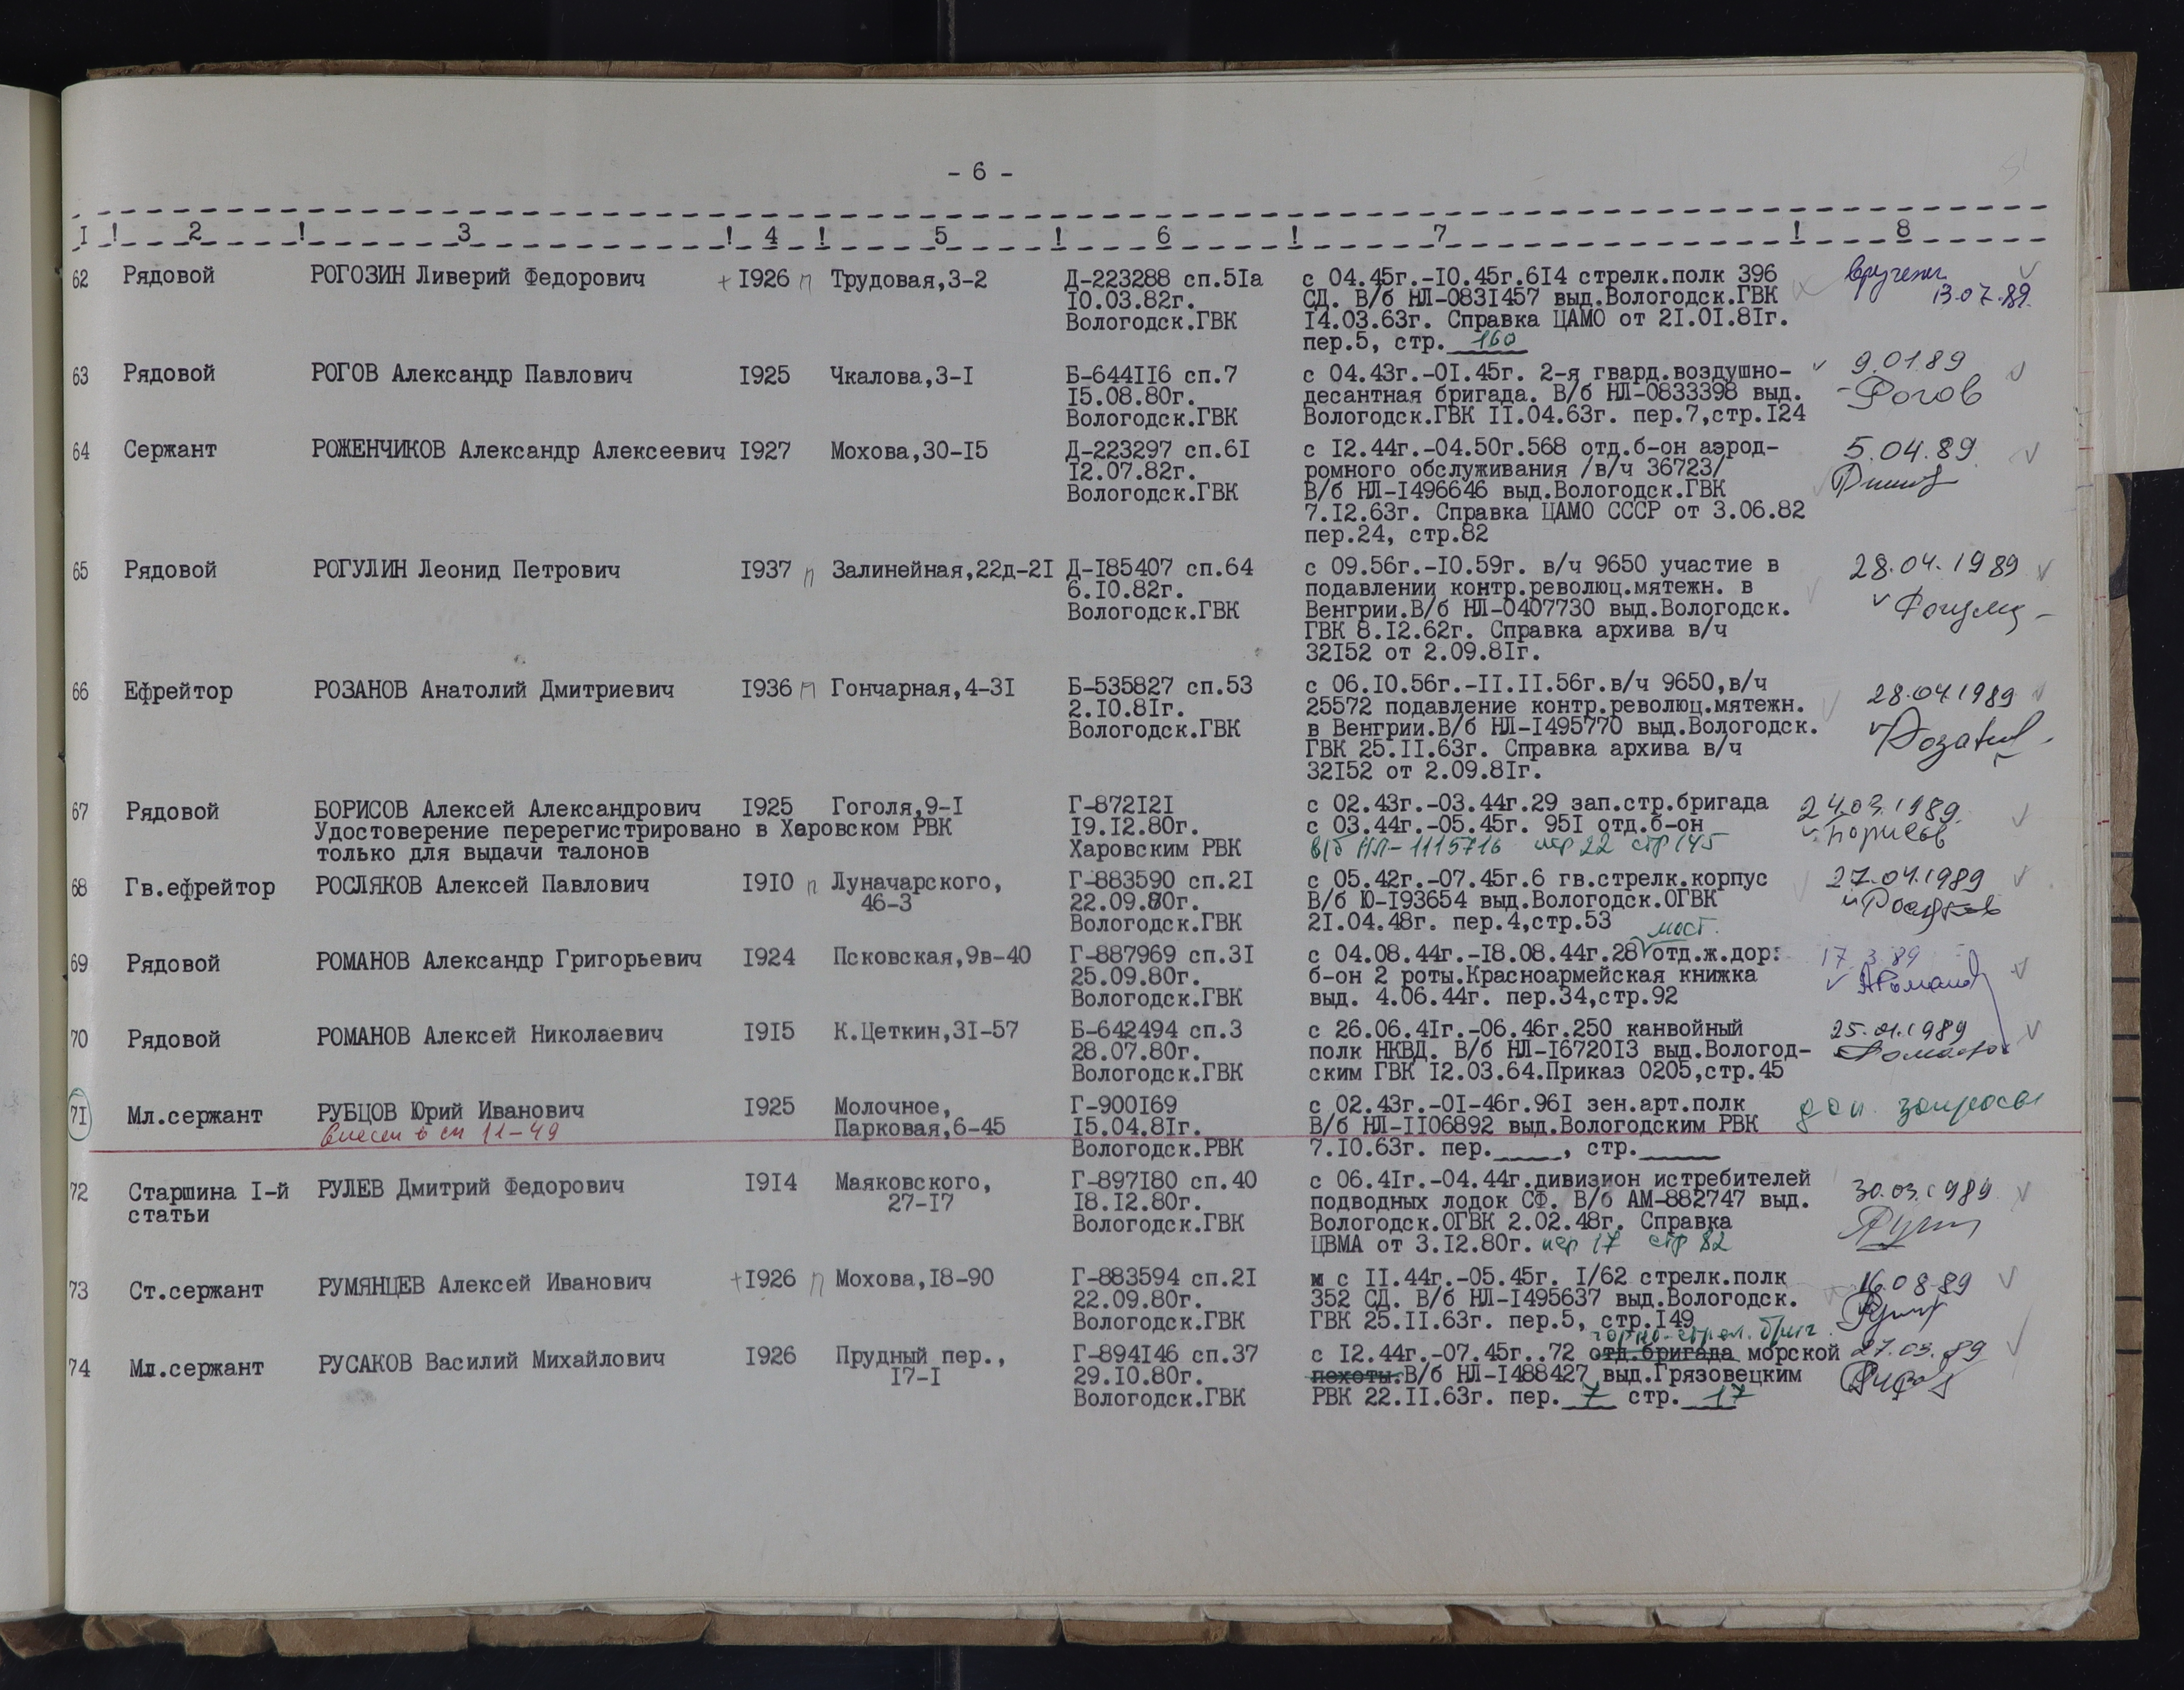 - 6 -
I ! 2 ! 3 ! 4 ! 5 ! 6 ! 7 ! 8
62 Рядовой РОГОЗИН Ливерий Федорович + I926 п Трудовая,3-2 Д-223288 сп.5Iа с 04.45г.-I0.45г.6I4 стрелк.полк 396 вручены
I0.03.82г. СД. В/б НЛ-083I457 выд.Вологодск.ГВК 13.07.89.
Вологодск.ГВК I4.03.63г. Справка ЦАМО от 2I.0I.8Iг.
пер.5, стр. 160
63 Рядовой РОГОВ Александр Павлович I925 Чкалова,3-I Б-644II6 сп.7 с 04.43г.-0I.45г. 2-я гвард.воздушно- 9.01.89
I5.08.80г. десантная бригада. В/б НЛ-0833398 выд. Рогов
Вологодск.ГВК Вологодск.ГВК II.04.63г. пер.7,стр.I24
64 Сержант РОЖЕНЧИКОВ Александр Алексеевич I927 Мохова,30-I5 Д-223297 сп.6I с I2.44г.-04.50г.568 отд.б-он аэрод- 5.04.89
I2.07.82г. ромного обслуживания /в/ч 36723/
Вологодск.ГВК В/б НЛ-I496646 выд.Вологодск.ГВК
7.I2.63г. Справка ЦАМО СССР от 3.06.82
пер.24, стр.82
65 Рядовой РОГУЛИН Леонид Петрович I937 п Залинейная,22д-2I Д-I85407 сп.64 с 09.56г.-I0.59г. в/ч 9650 участие в 28.04.1989
6.I0.82г. подавлении контр.революц.мятежн. в
Вологодск.ГВК Венгрии.В/б НЛ-0407730 выд.Вологодск.
ГВК 8.I2.62г. Справка архива в/ч
32I52 от 2.09.8Iг.
66 Ефрейтор РОЗАНОВ Анатолий Дмитриевич I936 п Гончарная,4-3I Б-535827 сп.53 с 06.I0.56г.-II.II.56г.в/ч 9650,в/ч 28.04.1989
2.I0.8Iг. 25572 подавление контр.революц.мятежн.
Вологодск.ГВК в Венгрии.В/б НЛ-I495770 выд.Вологодск.
ГВК 25.II.63г. Справка архива в/ч
32I52 от 2.09.8Iг.
67 Рядовой БОРИСОВ Алексей Александрович I925 Гоголя,9-I Г-872I2I с 02.43г.-03.44г.29 зап.стр.бригада 24.03.1989
Удостоверение перерегистрировано в Харовском РВК I9.I2.80г. с 03.44г.-05.45г. 95I отд.б-он Борисов
только для выдачи талонов Харовским РВК в/б НЛ-1115716 пер 22 стр 145
68 Гв.ефрейтор РОСЛЯКОВ Алексей Павлович I9I0 п Луначарского, Г-883590 сп.2I с 05.42г.-07.45г.6 гв.стрелк.корпус 27.04.1989
46-3 22.09.80г. В/б Ю-I93654 выд.Вологодск.ОГВК Росляков
Вологодск.ГВК 2I.04.48г. пер.4,стр.53
мост.
69 Рядовой РОМАНОВ Александр Григорьевич I924 Псковская,9в-40 Г-887969 сп.3I с 04.08.44г.-I8.08.44г.28 отд.ж.дор. 17.3.89
25.09.80г. б-он 2 роты.Красноармейская книжка АРоманов
Вологодск.ГВК выд. 4.06.44г. пер.34,стр.92
70 Рядовой РОМАНОВ Алексей Николаевич I9I5 К.Цеткин,3I-57 Б-642494 сп.3 с 26.06.4Iг.-06.46г.250 канвойный
28.07.80г. полк НКВД. В/б НЛ-I6720I3 выд.Вологод- Романов
Вологодск.ГВК ским ГВК I2.03.64.Приказ 0205,стр.45
7I Мл.сержант РУБЦОВ Юрий Иванович I925 Молочное, Г-900I69 с 02.43г.-0I-46г.96I зен.арт.полк доп. запросы
внесен в сп 11-49 Парковая,6-45 I5.04.8Iг. В/б НЛ-II06892 выд.Вологодским РВК
Вологодск.РВК 7.I0.63г. пер.____, стр._____
72 Старшина I-й РУЛЕВ Дмитрий Федорович I9I4 Маяковского, Г-897I80 сп.40 с 06.4Iг.-04.44г.дивизион истребителей 30.03.1989
статьи 27-I7 I8.I2.80г. подводных лодок СФ. В/б АМ-882747 выд.
Вологодск.ГВК Вологодск.ОГВК 2.02.48г. Справка
ЦВМА от 3.I2.80г. пер 17 стр 82
73 Ст.сержант РУМЯНЦЕВ Алексей Иванович + I926 п Мохова,I8-90 Г-883594 сп.2I с II.44г.-05.45г. I/62 стрелк.полк 16.08.89
22.09.80г. 352 СД. В/б НЛ-I495637 выд.Вологодск.
Вологодск.ГВК ГВК 25.II.63г. пер.5, стр.I49
горно-стрел. бриг.
74 Мл.сержант РУСАКОВ Василий Михайлович I926 Прудный пер., Г-894I46 сп.37 с I2.44г.-07.45г..72 отд.бригада морской 27.03.89
I7-I 29.I0.80г. пехоты.В/б НЛ-I488427 выд.Грязовецким
Вологодск.ГВК РВК 22.II.63г. пер. 7 стр. 17